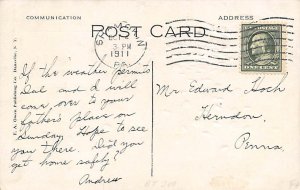 COMMUNICATION
POST CARD
ADDRESS
3 PM
1911
PA.
ONE CENT
If the weather permits
Dad and I will
come over to your
father's place on
Sunday. Hope to see
you there. Did you
get home safely?
Andrew
Mr Edward Hoch
Herndon,
Penna.